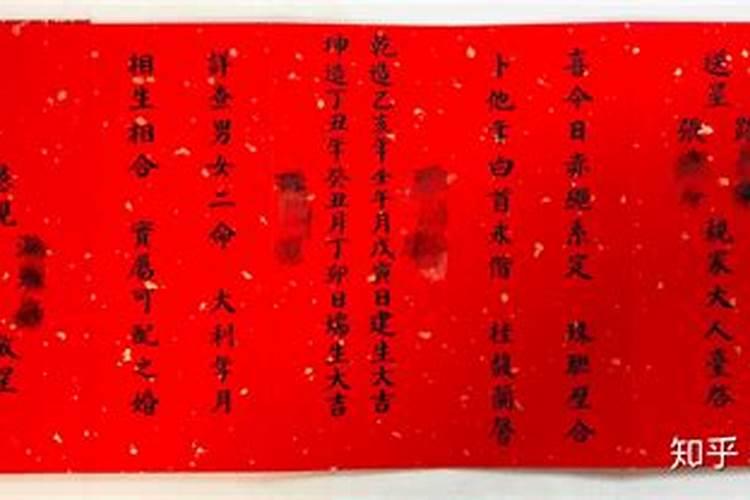 送呈
張
親家大人臺啓
喜今日赤繩系定 珠聯璧合
卜他年白首永偕 桂馥蘭馨
乾造乙亥年壬午月戊寅日建生大吉
坤造丁丑年癸丑月丁卯日瑞生大吉
詳查男女二命 大利年月
相生相合 實屬可配之婚
敬呈
知乎